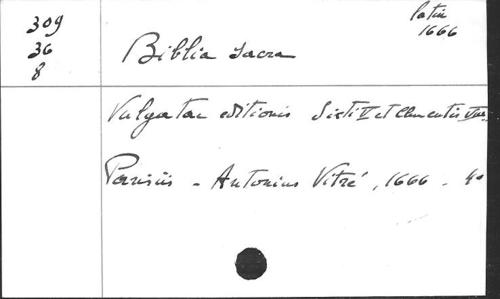 309
36
8
latin
1666
Biblia sacra
Vulgatae editionis Sixti V et Clementis VIII
Parisiis - Antonius Vitré, 1666 - 4°